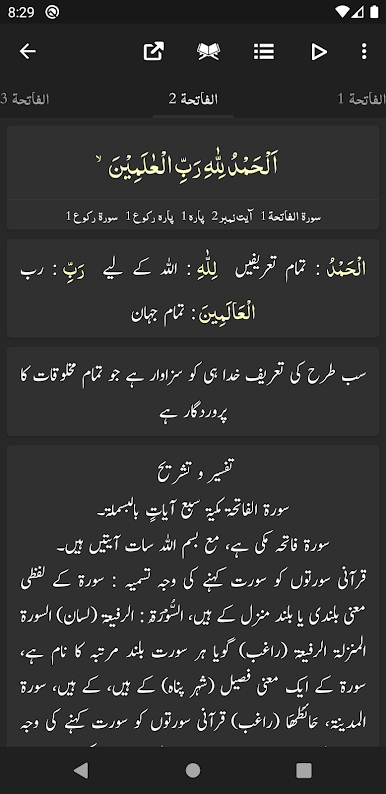 8:29
الفاتحة 1
الفاتحة 2
الفاتحة 3
اَلْحَمْدُ لِلّٰهِ رَبِّ الْعٰلَمِیْنَ ۙ
سورۃ الفاتحۃ 1 آیت نمبر 2 پارہ 1 پارہ رکوع 1 سورۃ رکوع 1
الْحَمْدُ : تمام تعریفیں لِلّٰهِ : اللہ کے لیے رَبِّ : رب
الْعَالَمِينَ : تمام جہان
سب طرح کی تعریف خدا ہی کو سزاوار ہے جو تمام مخلوقات کا
پروردگار ہے
تفسیر و تشریح
سورۃ الفاتحۃ مکیۃ سبع آیاتٍ بالبسملۃ۔
سورۃ فاتحہ مکی ہے، مع بسم اللہ سات آیتیں ہیں۔
قرآنی سورتوں کو سورت کہنے کی وجہ تسمیہ : سورۃ کے لفظی
معنی بلندی یا بلند منزل کے ہیں، السُّوْرَۃِ : الرفیعۃ (لسان) السورۃ
المنزلۃ الرفیعۃ (راغب) گویا ہر سورت بلند مرتبہ کا نام ہے،
سورۃ کے ایک معنی فصیل (شہر پناہ) کے ہیں، کے ہیں، سورۃ
المدینۃ، حَائطُھَا (راغب) قرآنی سورتوں کو سورت کہنے کی وجہ